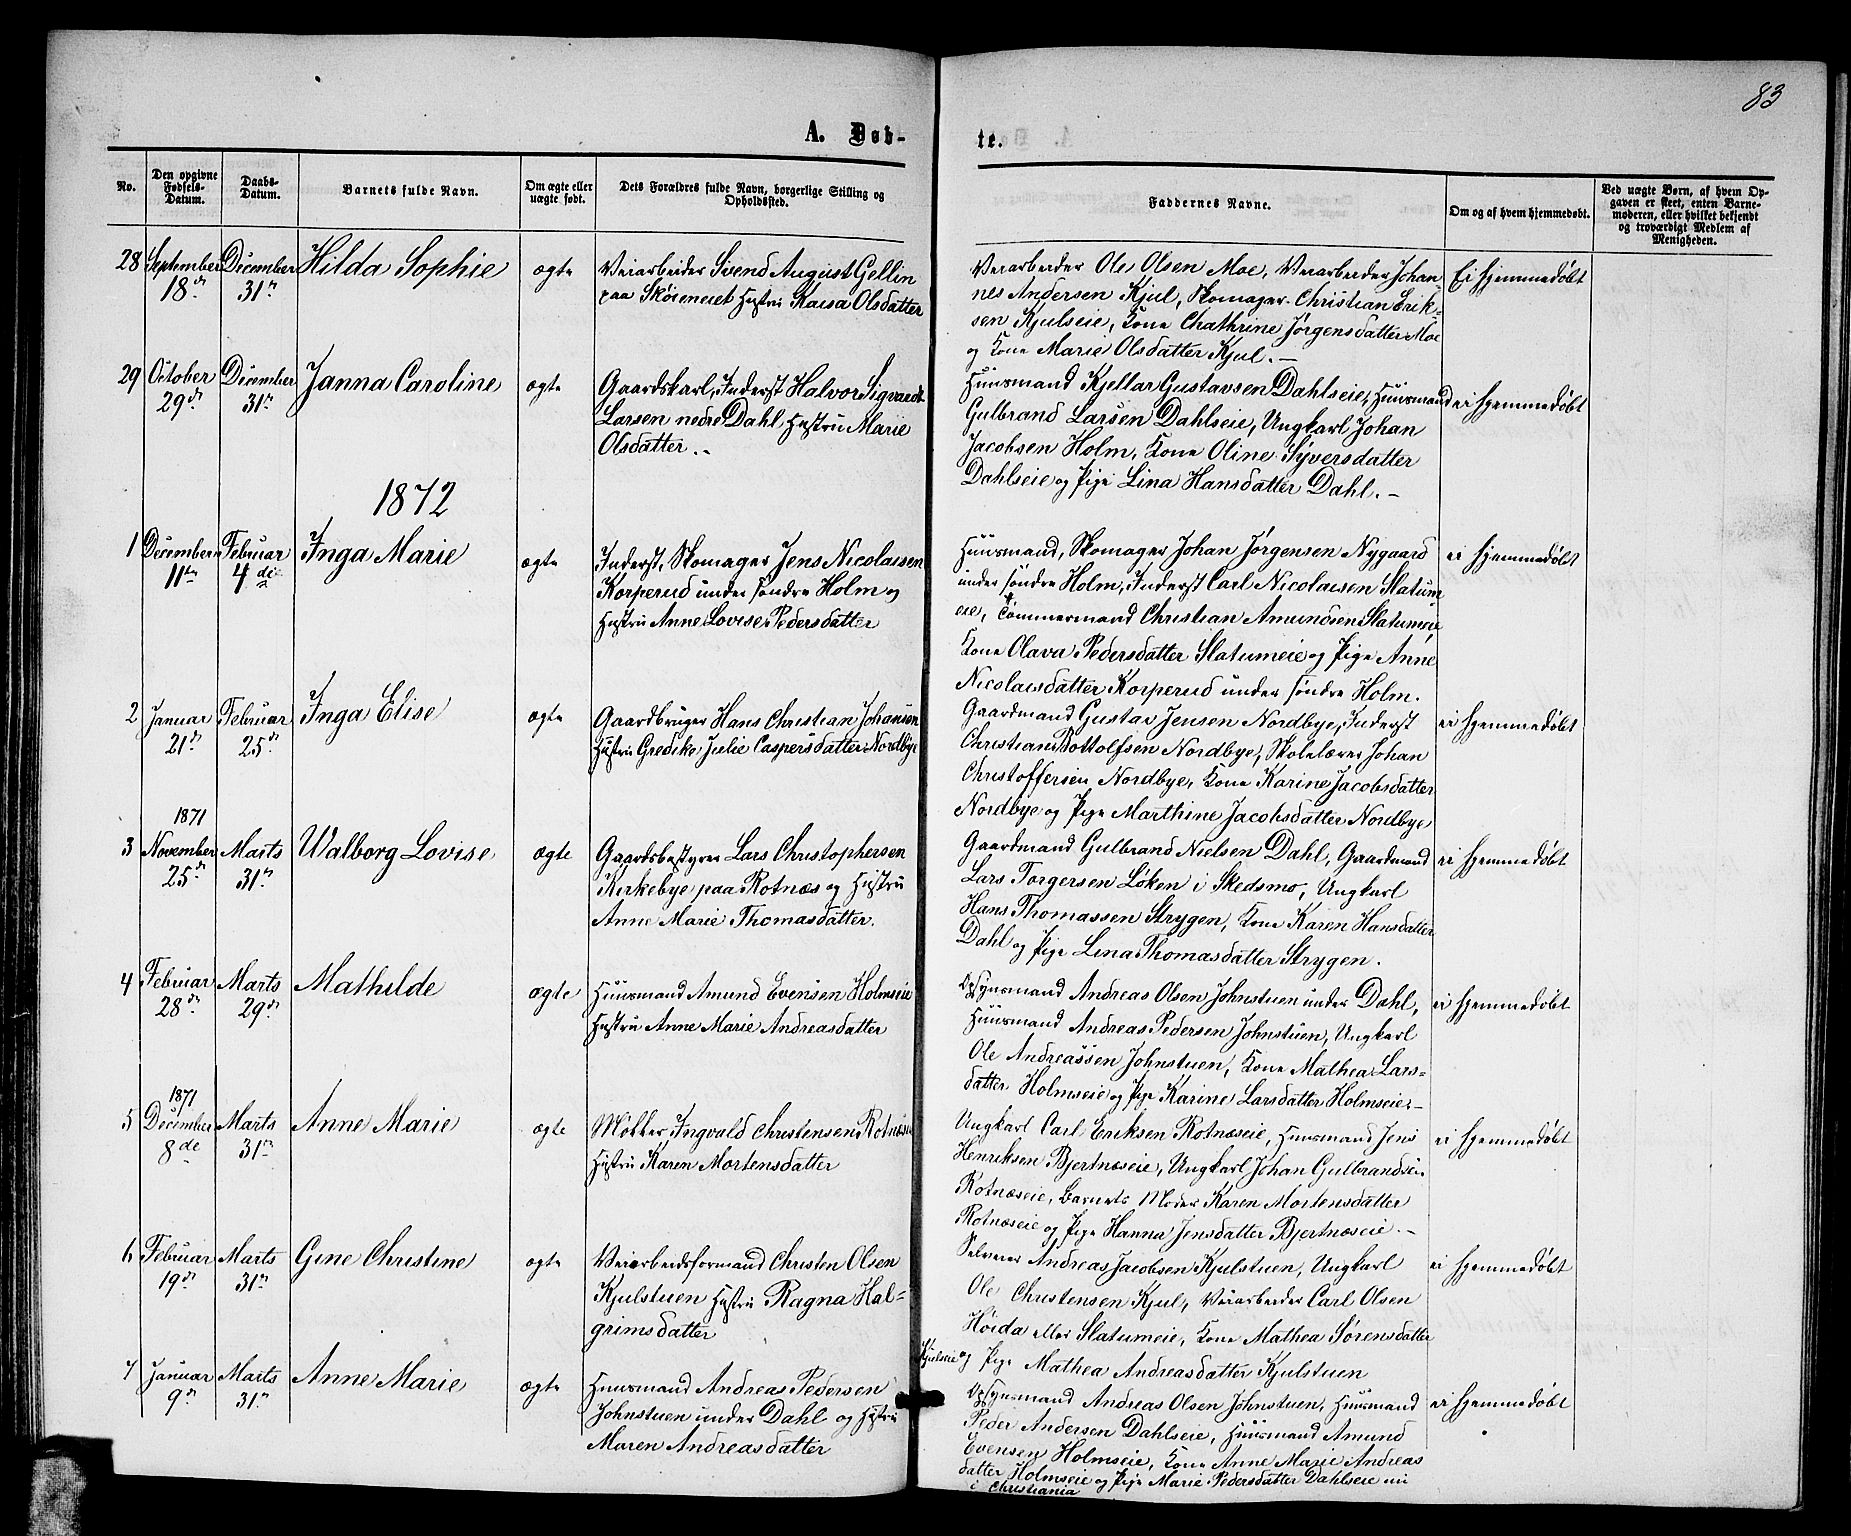 83
A. Døb-
te.
No.
Den opgivne Fødsels-Datum.
Daabs-Datum.
Barnets fulde Navn.
Om ægte eller uægte født.
Dets Forældres fulde Navn, borgerlige Stilling og Opholdssted.
Faddernes Navne.
Om og af hvem hjemmedøbt.
Ved uægte Børn, af hvem Opgaven er skeet, enten Barnemoderen, eller hvilket bekjendt og troværdigt Medlem af Menigheden.
28 September 18de December 31te Hilda Sophie ægte
Veiarbeider Svend August Gellin
paa Skøieneiet Hustru Kaisa Olsdatter
Veiarbeider Ole Olsen Moe, Veiarbeider Johan-
nes Andersen Kjul, Skomager Christian Erik-
sen Kjulseie, Kone Chathrine Jørgensdatter Moe
og Kone Marie Olsdatter Kjul.
Ei hjemmedøbt
29 October 29de December 31te Janna Caroline ægte
Gaardskarl, Inderst Halvor Sigvardt
Larsen nedre Dahl, Hustru Marie
Olsdatter.
Huusmand Kjellar Gustavsen Dahlseie, Huusmand
Gulbrand Larsen Dahlseie, Ungkarl Johan
Jacobsen Holm, Kone Oline Syversdatter
Dahlseie og Pige Lina Hansdatter Dahl.
ei hjemmedøbt
1872
1 December 11te Februar 4die Inga Marie ægte
Inderst, Skomager Jens Nicolaisen
Korperud under søndre Holm og
Hustru Anne Lovise Pedersdatter
Huusmand, Skomager Johan Jørgensen Nygaard
under søndre Holm, Inderst Carl Nicolaisen Slatum-
eie, Tømmermand Christian Amundsen Slatumeie
Kone Olava Pedersdatter Slatumeie og Pige Anne
Nicolaisdatter Korperud under søndre Holm.
ei hjemmedøbt
2 Januar 21de Februar 25de Inga Elise ægte
Gaardbruger Hans Christian Johansen
Hustru Gredike Julie Caspersdatter Nordbye
Gaardmand Gustav Jensen Nordbye, Inderst
Christian Bottolfsen Nordbye, Skolelærer Johan
Christoffersen Nordbye, Kone Karine Jacobsdatter
Nordbye og Pige Marthine Jacobsdatter Nordbye
ei hjemmedøbt
3 1871 November 25de Marts 31te Walborg Lovise ægte
Gaardsbestyrer Lars Christophersen
Kirkebye paa Rotnæs og Hustru
Anne Marie Thomasdatter.
Gaardmand Gulbrand Nielsen Dahl, Gaardmand
Lars Torgersen Løken i Skedsmo, Ungkarl
Hans Thomassen Strygen, Kone Karen Hansdatter
Dahl og Pige Lina Thomasdatter Strygen.
ei hjemmedøbt
4 Februar 28de Marts 29de Mathilde ægte
Huusmand Amund Evensen Holmseie
Hustru Anne Marie Andreasdatter
Opsynsmand Andreas Olsen Johnstuen under Dahl,
Huusmand Andreas Pedersen Johnstuen, Ungkarl
Ole Andreassen Johnstuen, Kone Mathea Lars-
datter Holmseie og Pige Karine Larsdatter Holmseie
ei hjemmedøbt
5 1871 December 8de Marts 31te Anne Marie ægte
Møller, Ingvald Christensen Rotnæseie
Hustru Karen Mortensdatter
Ungkarl Carl Eriksen Rotnæseie, Huusmand Jens
Henriksen Bjertnæseie, Ungkarl Johan Gulbrandsen
Rotnæseie, Barnets Moder Karen Mortensdatter
Rotnæseie og Pige Hanna Jensdatter Bjertnæseie
ei hjemmedøbt
6 Februar 19de Marts 31te Gine Christine ægte
Veiarbeidsformand Christen Olsen
Kjulstuen Hustru Ragna Hal-
grimsdatter
Selveier Andreas Jacobsen Kjulstuen, Ungkarl
Ole Christensen Kjul, Veiarbeider Carl Olsen
Høida eller Slatumeie, Kone Mathea Sørensdatter
Kjulseie og Pige Mathea Andreasdatter Kjulstuen
ei hjemmedøbt
7 Januar 9de Marts 31te Anne Marie ægte
Huusmand Andreas Pedersen
Johnstuen under Dahl og Hustru
Maren Andreasdatter
Opsynsmand Andreas Olsen Johnstuen, Huusmand
Peder Andersen Dahlseie, Huusmand Amund
Evensen Holmseie, Kone Anne Marie Andreas
datter Holmseie og Pige Marie Pedersdatter Dahlseie nu
i Christiania
ei hjemmedøbt